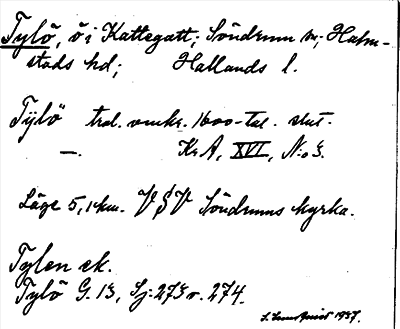 Tylö, ö i Kattegatt; Söndrum sn; Halm-
stads hd; Hallands l.
Tÿlö trol. omkr. 1600-tal. slut.
—. KrA, XVI, N:o 3.
Läge 5,1 km. VSV Söndrums kyrka.
Tylen ek.
Tylö G. 13, Sj: 273 r. 274.
1937.